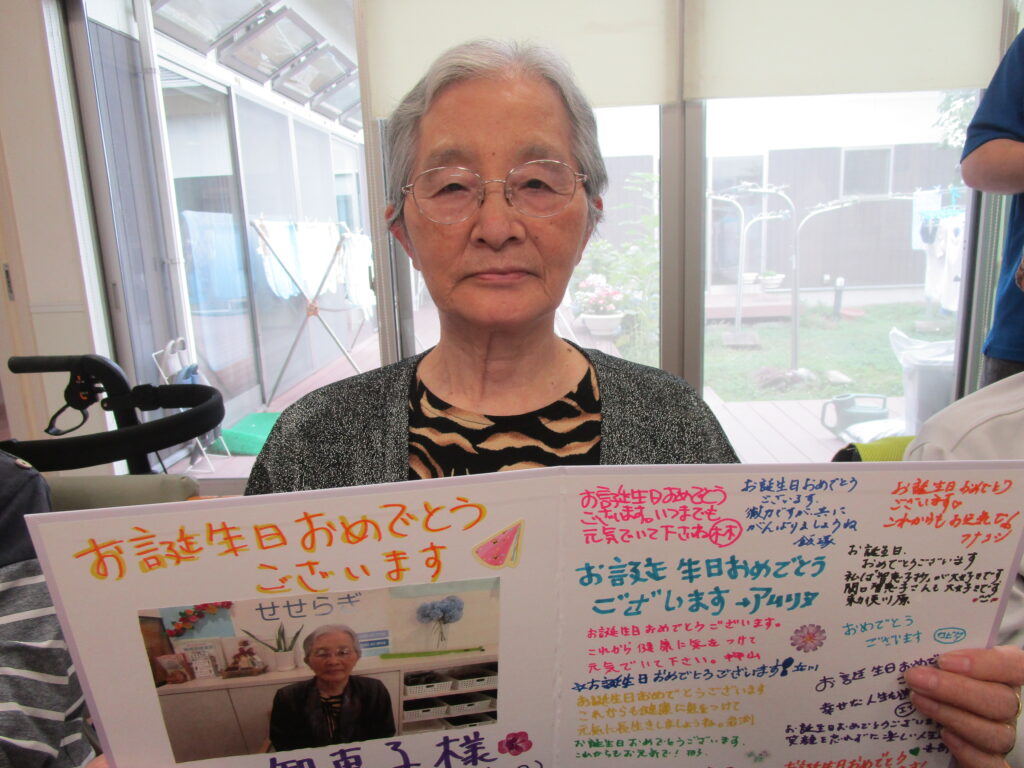 お誕生日おめでとう
ございます
せせらぎ
恵子様
お誕生日おめでとう
ございます。いつまでも
元気でいて下さいね
お誕生日おめでとう
ございます。
微力ですが、共に
がんばりましょうね
飯塚
お誕生日おめでとう
ございます。
これからもお元気で!
お誕生日、
おめでとうございます
お誕生日おめでとう
ございます
おめでとう
ございます
お誕生日おめでとうございます。
これから健康に気をつけて
元気でいて下さい。
お誕生日おめでとうございます!
お誕生日おめでとうございます
これからも健康に気をつけて
元気に長生きしましょうね。
お誕生日おめでとうございます。
これからもお元気で!
お誕生日おめで
幸せな人生を
お誕生日おめでとうござい
笑顔を忘れずに楽しい人生
お誕生日おめでとうございます!